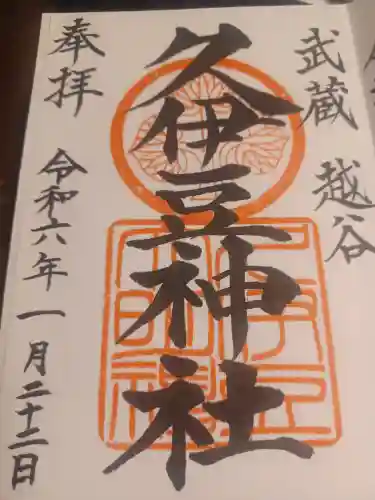 武蔵 越谷
久伊豆神社
奉拝
令和六年一月二十二日